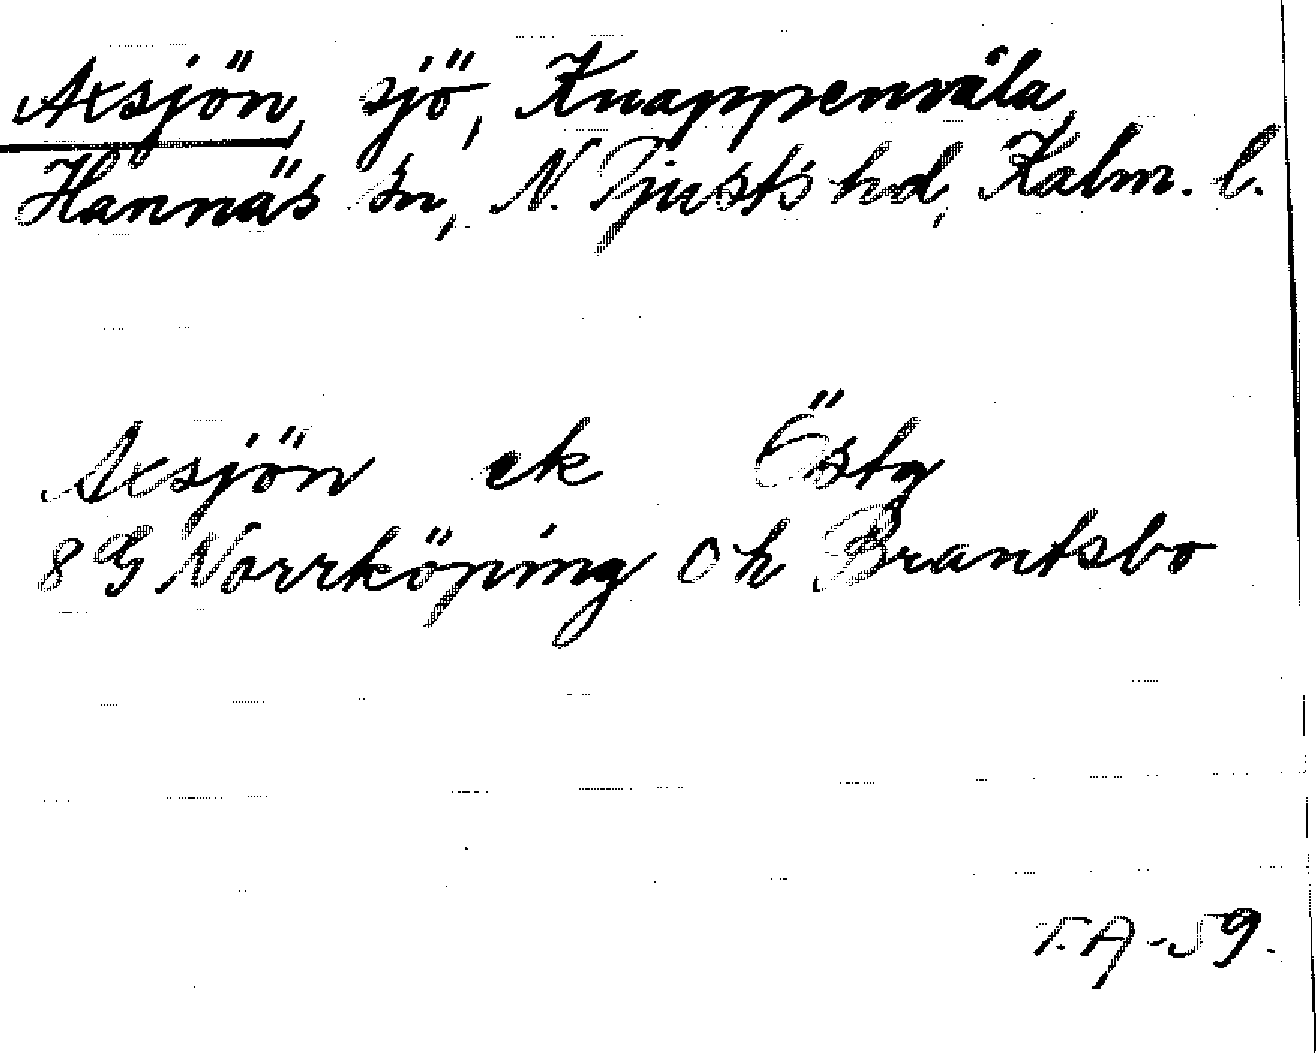 Axsjön, sjö, Knappenvåla,
Hannäs sn, N. Tjusts hd, Kalm. l.
Axsjön ek Östg
8 G Norrköping 0 h Brantsbo
T.A-59.